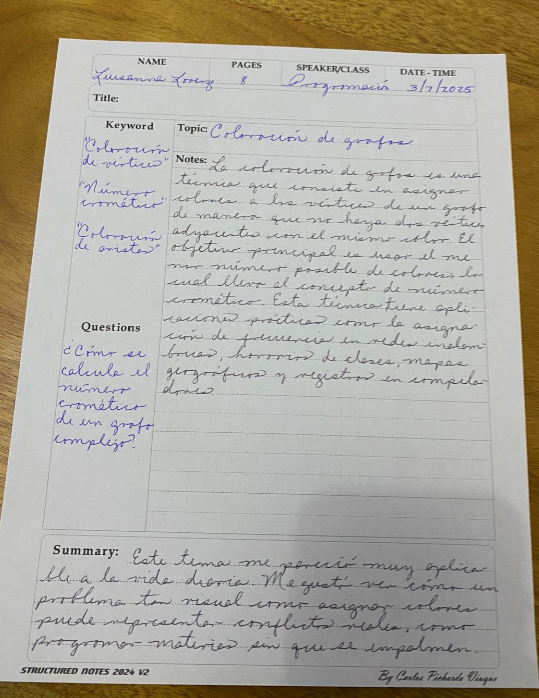 NAME PAGES SPEAKER/CLASS DATE-TIME
Luisanna Lorenzo 8 Programación 3/7/2025
Title:
Keyword
"Coloración
de vértices"
"Número
cromático"
"Coloración
de aristas"
Questions
¿Cómo se
calcula el
número
cromático
de un grafo
complejo?
Topic: Coloración de grafos
Notes: La coloración de grafos es una
técnica que consiste en asignar
colores a los vértices de un grafo
de manera que no haya dos vértices
adyacentes con el mismo color. El
objetivo principal es usar el me
nor número posible de colores, lo
cual lleva al concepto de número
cromático. Esta técnica tiene apli-
caciones prácticas como la asigna-
ción de frecuencia en redes inalám-
bricas, horarios de clases, mapas
geográficos y registros en compila-
dores.
Summary: Este tema me pareció muy aplica
ble a la vida diaria. Me gustó ver cómo un
problema tan visual como asignar colores
puede representar conflictos reales, como
programar materias sin que se empalmen.
STRUCTURED NOTES 2024 V2
By Carlos Pichardo Viuque